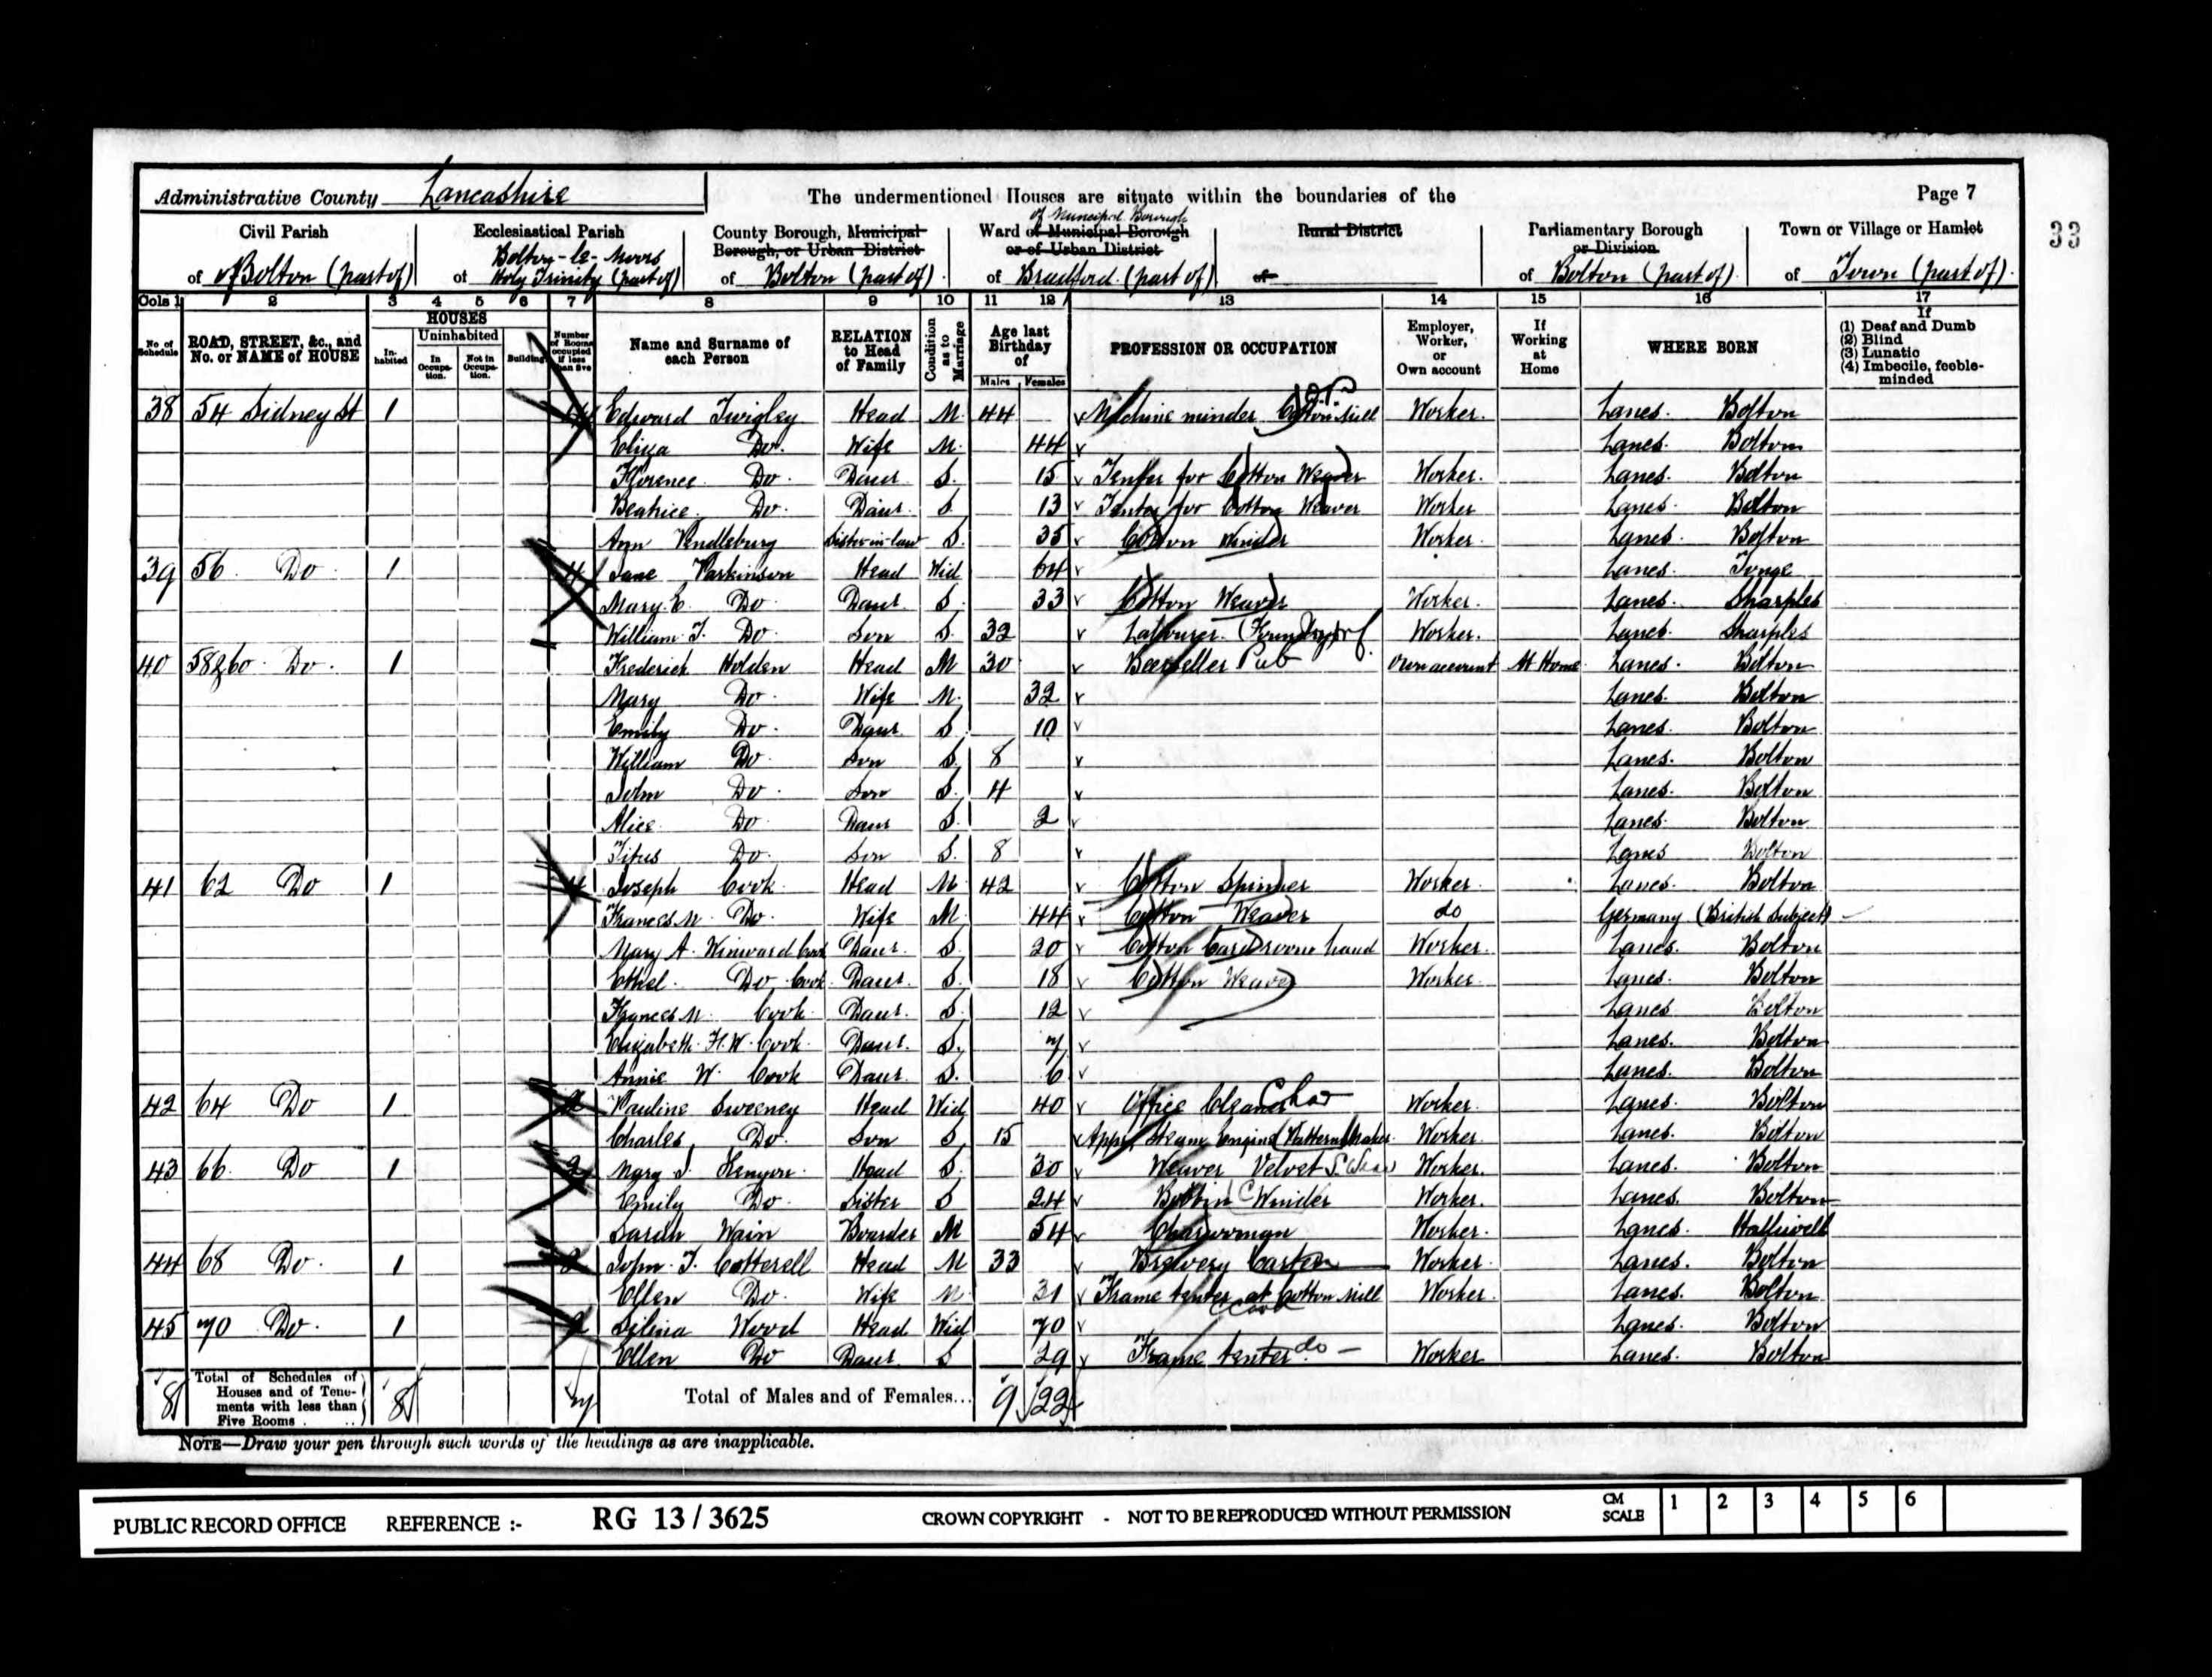 Administrative County Lancashire The undermentioned Houses are situate within the boundaries of the Page 7
33
Civil Parish of Bolton (part of)
Ecclesiastical Parish of Bolton-le-Moors Holy Trinity (part of)
County Borough, Municipal Borough, or Urban District of Bolton (part of)
Ward of Municipal Borough of Municipal Borough or of Urban District of Bradford (part of)
Rural District of
Parliamentary Borough or Division of Bolton (part of)
Town or Village or Hamlet of Town (part of)
Cols 1 2 3 4 5 6 7 8 9 10 11 12 13 14 15 16 17
No of Schedule
ROAD, STREET, &c., and No. or NAME of HOUSE
HOUSES
Inhabited
Uninhabited
In Occupation.
Not in Occupation.
Building
Number of Rooms occupied if less than five
Name and Surname of each Person
RELATION to Head of Family
Condition as to Marriage
Age last Birthday of
Males Females
PROFESSION OR OCCUPATION
Employer, Worker, or Own account
If Working at Home
WHERE BORN
If (1) Deaf and Dumb (2) Blind (3) Lunatic (4) Imbecile, feeble-minded
38 54 Sidney St 1 4 Edward Twigley Head M 44 Machine minder Cotton Mill Worker Lancs. Bolton
Eliza Do. Wife M. 44 Lancs. Bolton
Florence Do. Daur S. 15 Tenter for Cotton Weaver Worker. Lancs. Bolton
Beatrice Do. Daur. S. 13 Tenter for Cotton Weaver Worker Lancs. Bolton
Ann Pendlebury Sister in law S. 35 Cotton Winder Worker. Lancs. Bolton
39 56 Do 1 4 Jane Parkinson Head Wid 64 Lancs. Tonge
Mary E. Do Daur S. 33 Cotton Weaver Worker. Lancs. Sharples
William T. Do. Son S. 32 Labourer (Foundry) Worker. Lancs. Sharples
40 58 & 60 Do. 1 Frederick Holden Head M 30 Beerseller Pub Own account At Home Lancs. Bolton
Mary Do. Wife M. 32 Lancs. Bolton
Emily Do. Daur S 10 Lancs. Bolton
William Do. Son S. 8 Lancs. Bolton
John Do. Son S. 4 Lancs. Bolton
Alice Do. Daur S. 2 Lancs. Bolton
Titus Do. Son S. 8 Lancs Bolton
41 62 Do 1 4 Joseph Cook Head M 42 Cotton Spinner Worker. Lancs. Bolton
Frances M. Do. Wife M. 44 Cotton Weaver do Germany (British Subject)
Mary A. Winward Cook Daur. S. 20 Cotton Card room hand Worker. Lancs. Bolton
Ethel Do. Cook Daur. S. 18 Cotton Weaver Worker Lancs. Bolton
Frances M. Cook Daur. S. 12 Lancs Bolton
Elizabeth H. W. Cook Daur. S. 7 Lancs. Bolton
Annie W. Cook Daur. S. 6 Lancs. Bolton
42 64 Do 1 2 Pauline Sweeney Head Wid 40 Office Cleaner Char Worker. Lancs. Bolton
Charles Do. Son S 15 App. Steam Engine Pattern Maker Worker. Lancs. Bolton
43 66 Do 1 2 Mary J. Kenyon Head S. 30 Weaver Velvet Worker. Lancs. Bolton
Emily Do. Sister S 24 Bobbin C Winder Worker. Lancs. Bolton
Sarah Wain Boarder M 54 Charwoman Worker. Lancs. Halliwell
44 68 Do. 1 2 John T. Cotterell Head M 33 Brewery Carter Worker. Lancs. Bolton
Ellen Do. Wife M. 31 Frame tenter at Cotton Mill Worker. Lancs. Bolton
45 70 Do. 1 2 Selina Wood Head Wid 70 Lancs. Bolton
Ellen Do Daur S 29 Frame tenter do Worker Lancs. Bolton
8 Total of Schedules of Houses and of Tenements with less than Five Rooms 8 7 Total of Males and of Females... 9 22
NOTE—Draw your pen through such words of the headings as are inapplicable.
PUBLIC RECORD OFFICE REFERENCE :- RG 13 / 3625 CROWN COPYRIGHT - NOT TO BE REPRODUCED WITHOUT PERMISSION CM SCALE 1 2 3 4 5 6